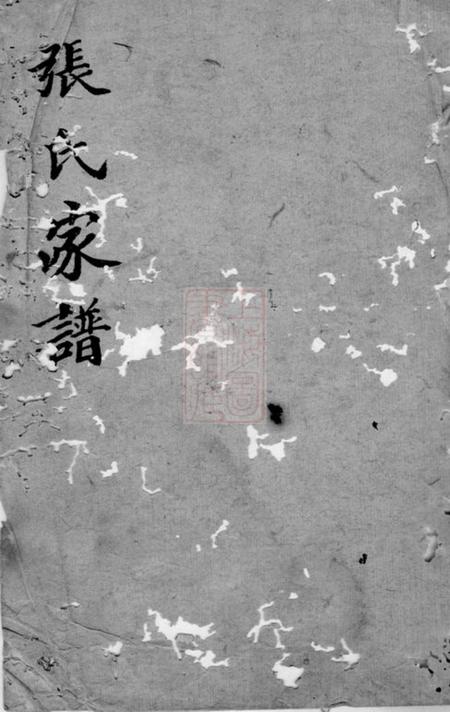 張氏家譜